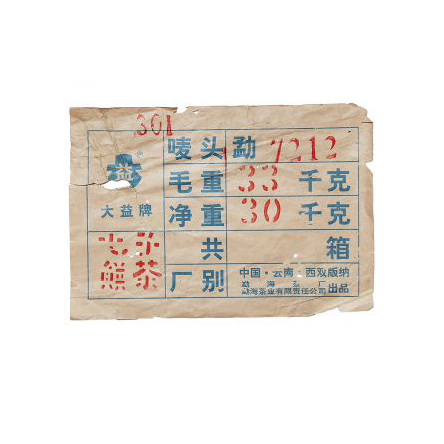 301
唛头 勐 7212
益
®
大益牌
毛重 33 千克
净重 30 千克
共 箱
茶
厂别
中国·云南·西双版纳
勐海茶厂
勐海茶业有限责任公司 出品